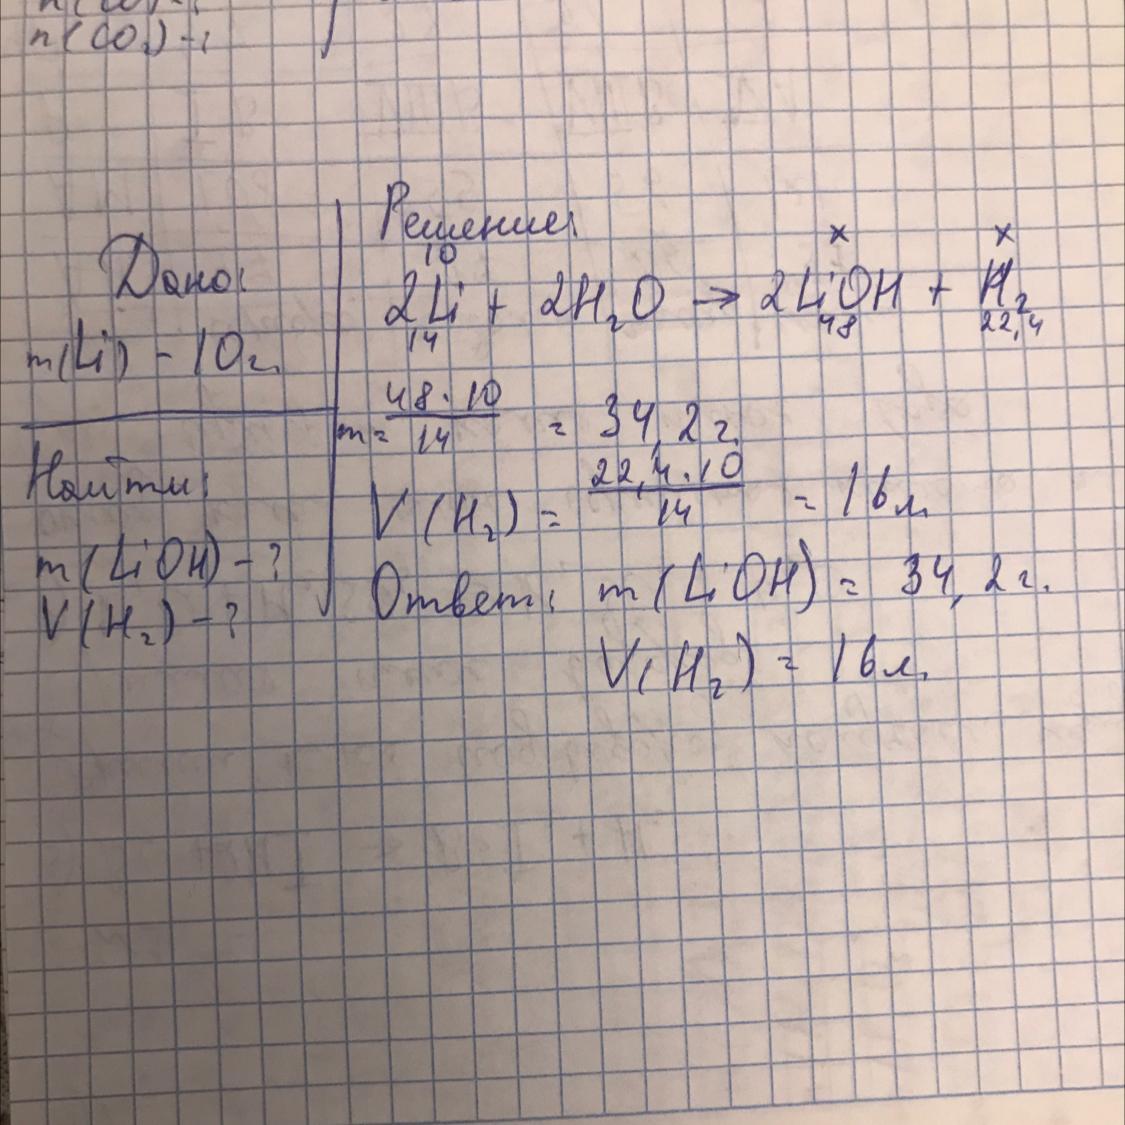 n(CO₂) - ?
Дано:
m(Li) - 10г.
Найти:
m(LiOH) - ?
V(H₂) - ?
Решение:
10 x x
2Li + 2H₂O → 2LiOH + H₂
14 48 22,4
m = 48·10/14 = 34,2 г.
V(H₂) = 22,4·10/14 = 16л.
Ответ: m(LiOH) = 34,2г.
V(H₂) = 16л.